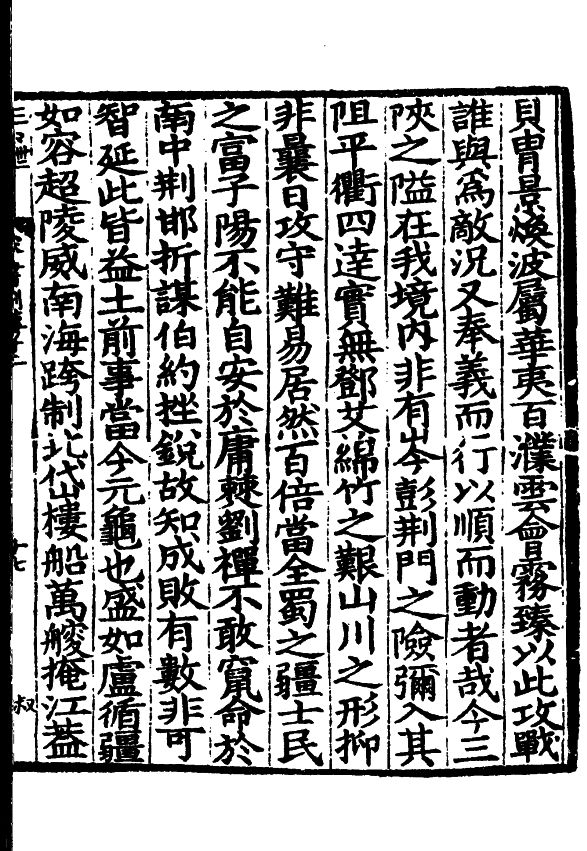 貝冑景煥波屬華夷百濮雲會霧臻以此攻戰
誰與爲敵況又奉義而行以順而動者哉今三
陜之隘在我境內非有岑彭荆門之險彌入其
阻平衢四逹實無鄧艾綿竹之艱山川之形抑
非曩日攻守難易居然百倍當全蜀之疆士民
之富子陽不能自安於庸棘劉禪不敢竄命於
南中荆邯折謀伯約挫銳故知成敗有數非可
智延此皆益土前事當今元龜也盛如盧循疆
如容超陵威南海跨制北岱樓船萬艘掩江葢
十七